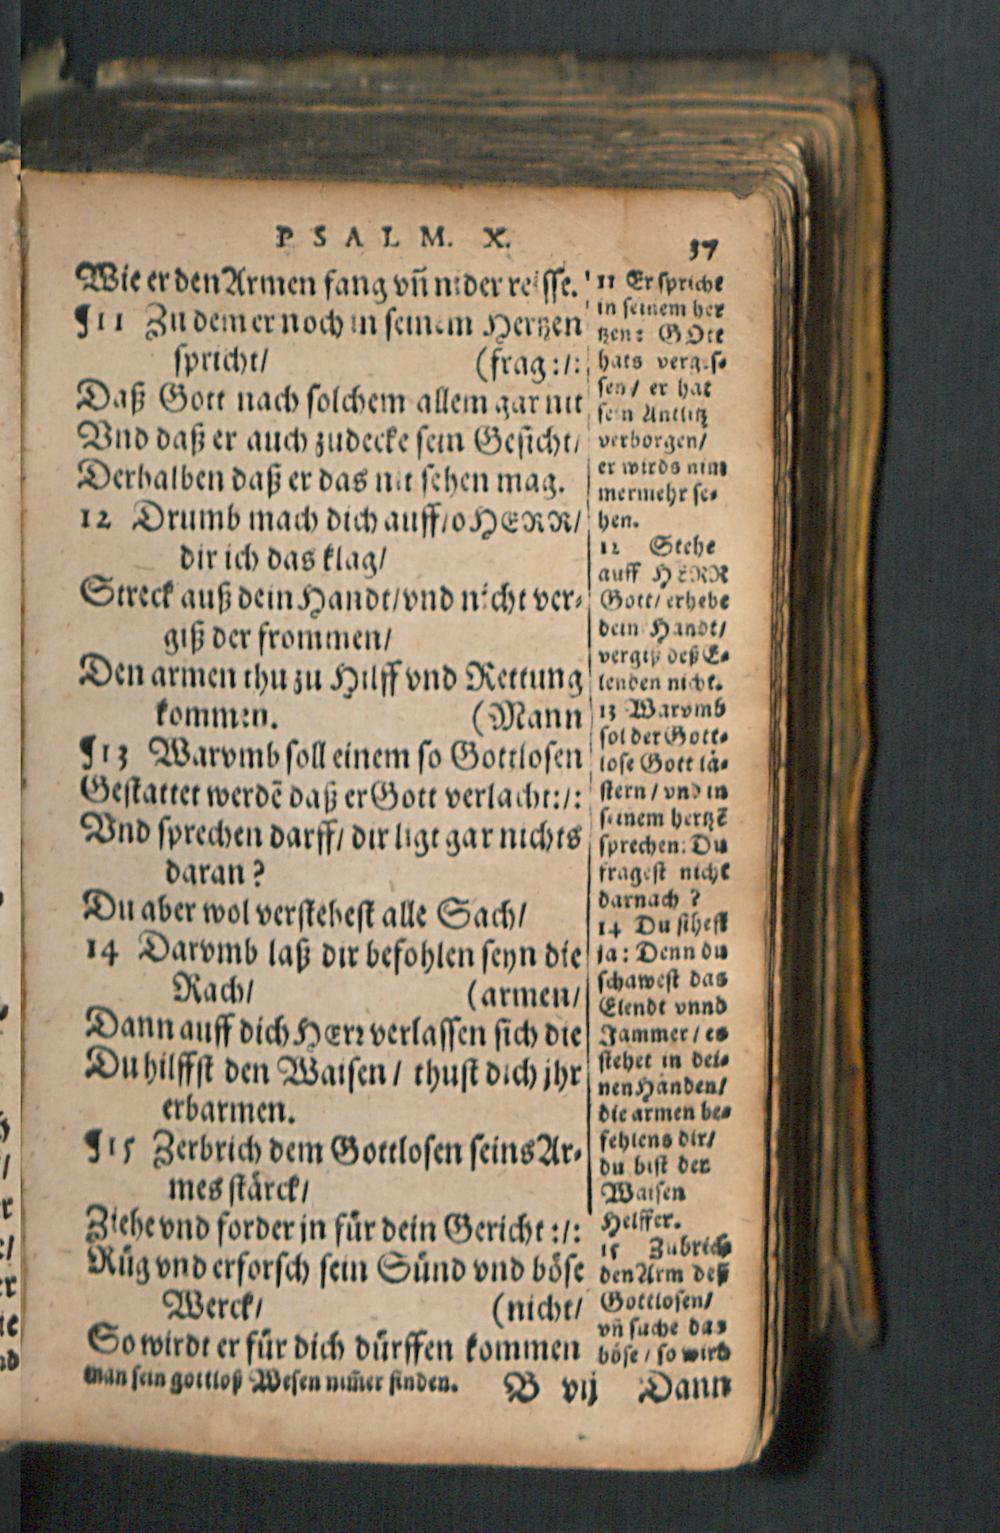 PSALM. X.
37
Wie er den Armen fang vñ nider reisse.
¶11 Zu dem er noch in seinem Hertzen
spricht/ (frag:/:
Daß Gott nach solchem allem gar nit
Vnd daß er auch zudecke sein Gesicht/
Derhalben daß er das nit sehen mag.
12 Drumb mach dich auff/ o HERR/
dir ich das klag/
Streck auß dein Handt/ vnd nicht ver-
giß der frommen/
Den armen thu zu Hilff vnd Rettung
kommen. (Mann
¶13 Warvmb soll einem so Gottlosen
Gestattet werdẽ daß er Gott verlacht:/:
Vnd sprechen darff/ dir ligt gar nichts
daran?
Du aber wol verstehest alle Sach/
14 Darvmb laß dir befohlen seyn die
Rach/ (armen/
Dann auff dich HErr verlassen sich die
Du hilffst den Waisen/ thust dich jhr
erbarmen.
¶15 Zerbrich dem Gottlosen seins Ar-
mes stärck/
Ziehe vnd forder jn für dein Gericht:/:
Rüg vnd erforsch sein Sünd vnd böse
Werck/ (nicht/
So wirdt er für dich dürffen kommen
11 Er spricht
in seinem her
tzen: GOtt
hats verges-
sen/ er hat
sein Antlitz
verborgen/
er wirds nim
mermehr se-
hen.
12 Stehe
auff HERR
Gott/ erhebe
dein Handt/
vergiß deß E-
lenden nicht.
13 Warvmb
sol der Gott-
lose Gott lä-
stern/ vnd in
seinem hertzẽ
sprechen: Du
fragest nicht
darnach?
14 Du sihest
ja: Denn du
schawest das
Elendt vnnd
Jammer/ es
stehet in dei-
nen Händen/
die armen be-
fehlens dir/
du bist der
Waisen
Helffer.
15 Zubrich
den Arm deß
Gottlosen/
vñ suche das
böse/ so wird
man sein gottloß Wesen nim̃er finden.
B vij Dann